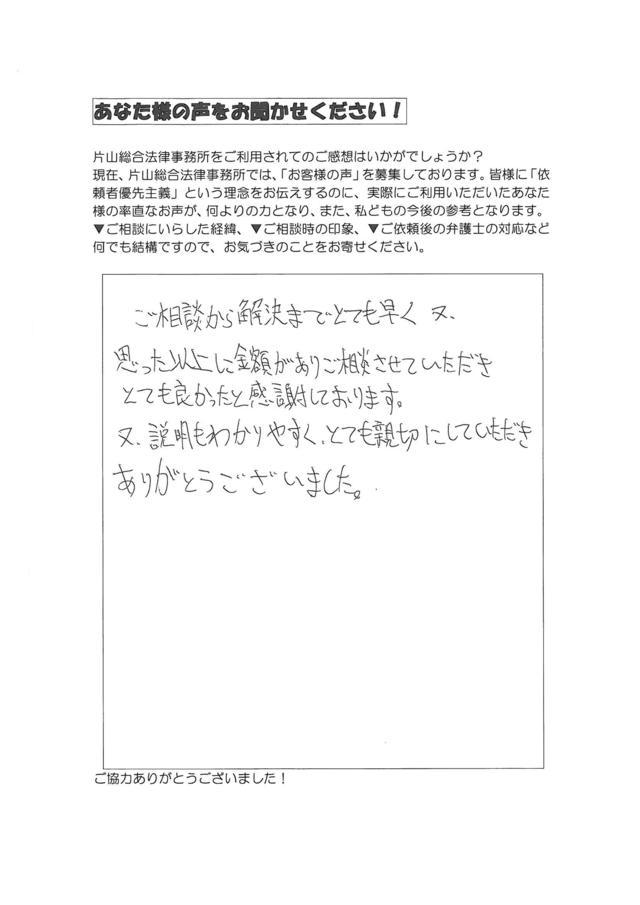 あなた様の声をお聞かせください！
片山総合法律事務所をご利用されてのご感想はいかがでしょうか？
現在、片山総合法律事務所では、「お客様の声」を募集しております。皆様に「依
頼者優先主義」という理念をお伝えするのに、実際にご利用いただいたあなた
様の率直なお声が、何よりの力となり、また、私どもの今後の参考となります。
▼ご相談にいらした経緯、▼ご相談時の印象、▼ご依頼後の弁護士の対応など
何でも結構ですので、お気づきのことをお寄せください。
ご相談から解決までとても早く 又、
思った以上に金額がありご相談させていただき
とても良かったと感謝しております。
又、説明もわかりやすく、とても親切にしていただき
ありがとうございました。
ご協力ありがとうございました！